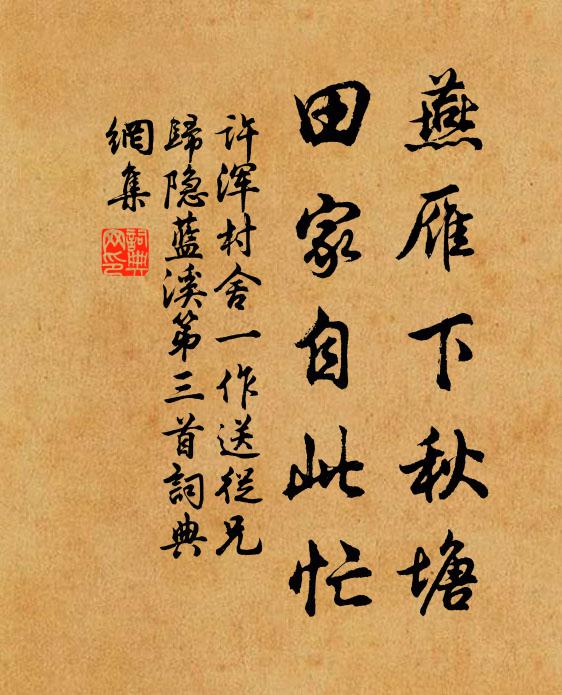 燕雁下秋塘
田家自此忙
许浑村舍一作送從兄
歸隐蓝溪第三首詞典
網集
詞典網印